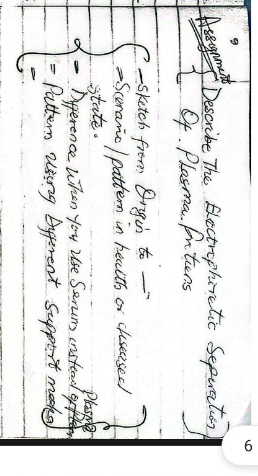 9
Assignment
Describe The Electrophoretic Separation
Of Plasma Proteins
- Sketch from Origin to —
- Scenario / pattern in health or diseased
state.
- Difference when you use Serum instead of Plasma
- Pattern using Different Support media
6